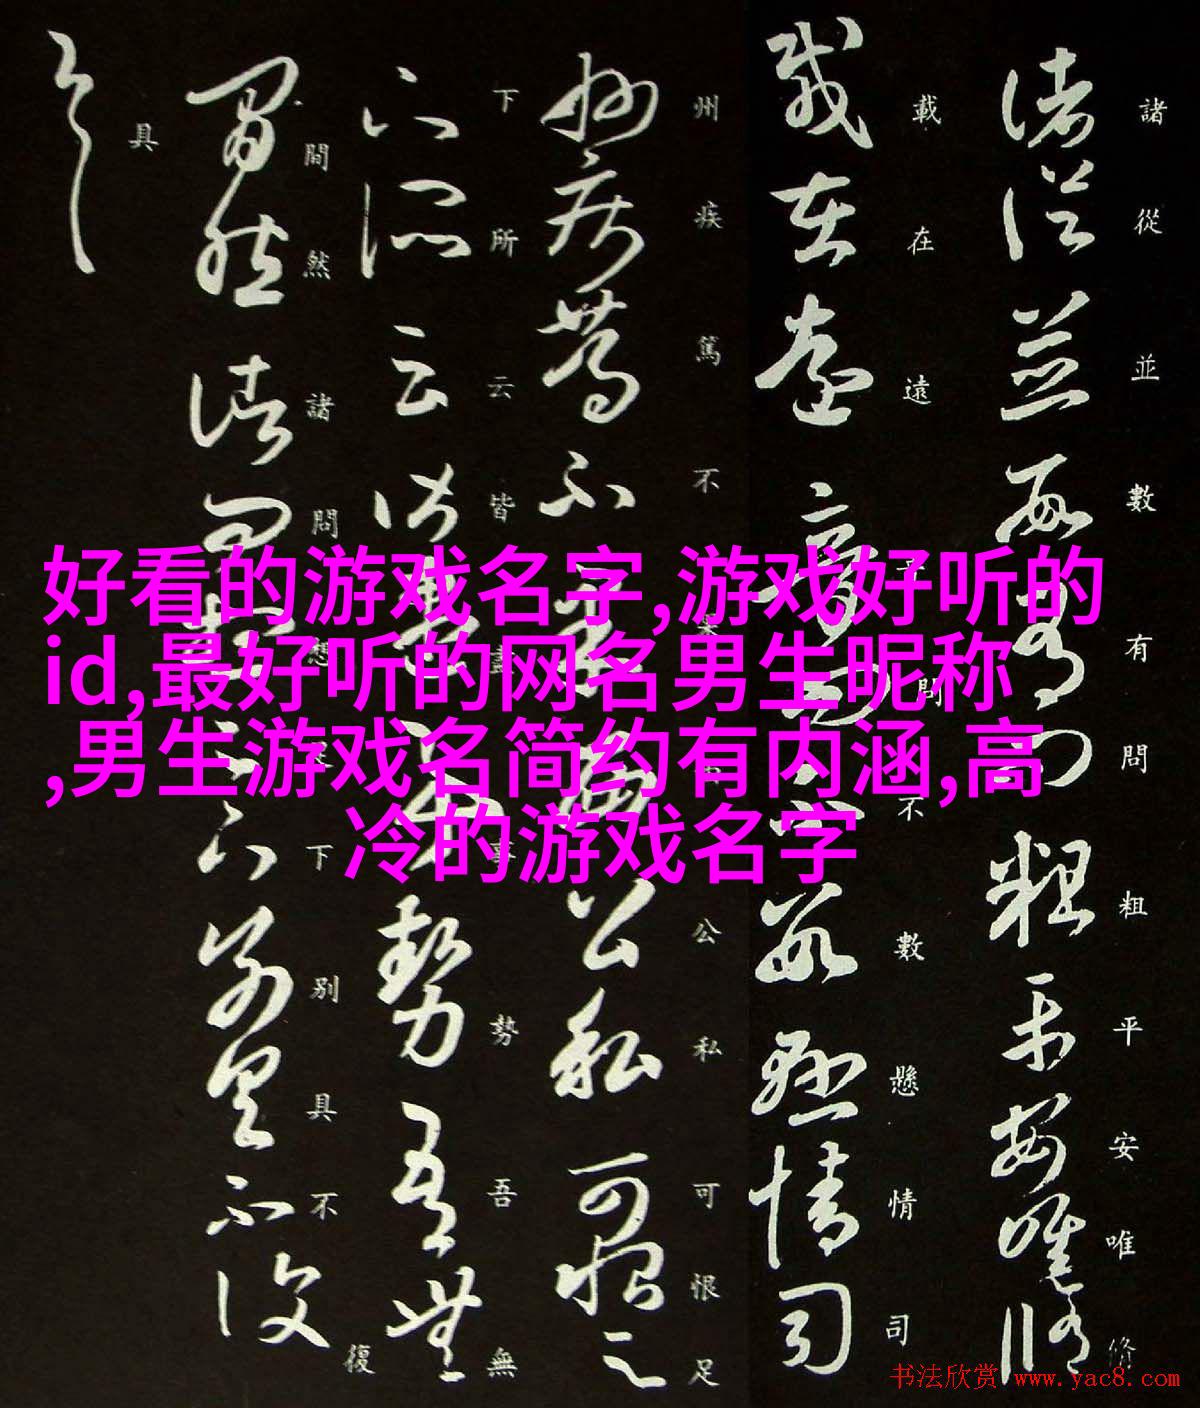 諸從並數有問粗平安唯修
載在遠音問不數懸情司
州疾篤不果公私可恨足
下所云皆盡事勢吾無
間然諸問想下別具不復
具
好看的游戏名字,游戏好听的
id,最好听的网名男生昵称
,男生游戏名简约有内涵,高
冷的游戏名字
书法欣赏 www.yac8.com